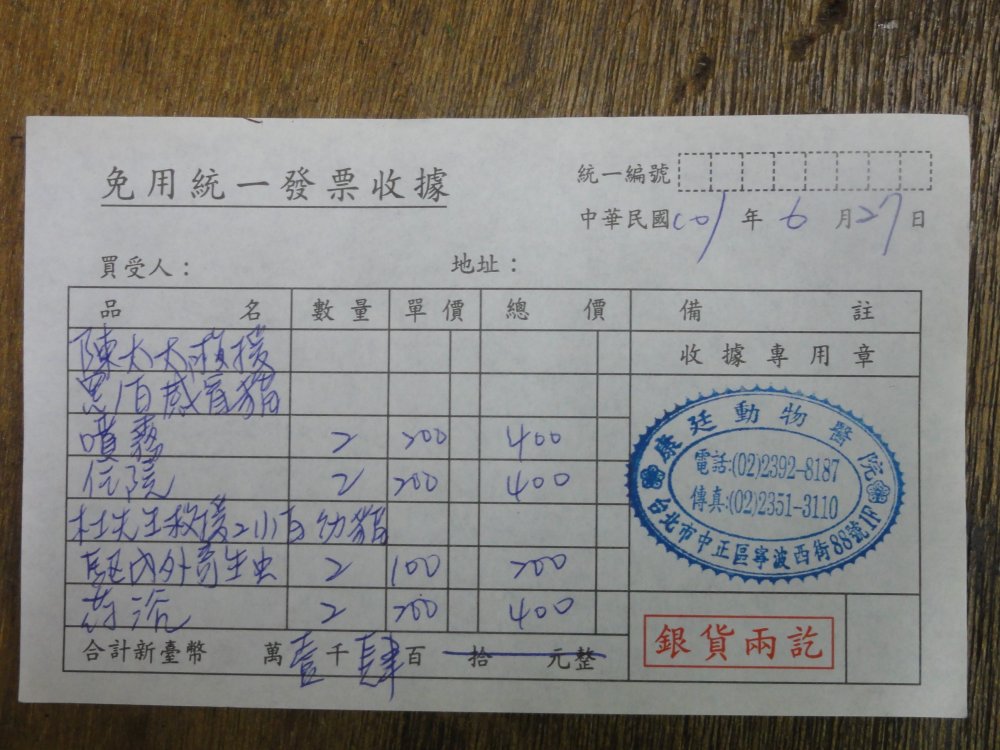 免用統一發票收據
統一編號
中華民國101年6月27日
買受人: 地址:
品名 數量 單價 總價 備註
陳太太救援 收據專用章
黑百盲貓
噴霧 2 200 400
住院 2 200 400
杜先生救援2小白幼貓
驅內外寄生虫 2 100 200
药浴 2 200 400
合計新臺幣 萬壹千肆百拾元整
康廷動物醫院
電話:(02)2392-8187
傳真:(02)2351-3110
台北市中正區寧波西街88號1F
銀貨兩訖